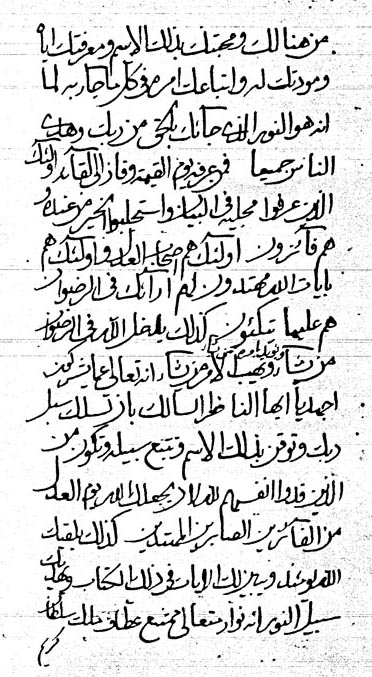 من هنالك ومحبتك بذلك الاسم ومعرفتك اياه
ومودتك له واتباعك امره في كل ما جاء به لما
انه هو النور الذي جائك بالحق من ربك وهدى
الناس جميعا فمن عرفه يوم القيمة وفاز الى لقائه اولئك
الذين عرفوا في البيان الخير من عنده و
هم فائزون اولئك هم اصحاب العدل واولئك هم
بايات الله مهتدون لهم ارائك في الرضوان
هم عليها متكئون كذلك يدخل الله في الرضوان
من يشاء ويهب الامر من يشاء انه تعالى عما يشركون
اجهد يا ايها الناظر السالك بان تسلك سبل
ربك وتوقن بذلك الاسم وتتبع سبيله وتكون من
الذين فدوا انفسهم لله لان يجعلك الله يوم العدل
من الفائزين الصابرين الممتحنين كذلك يلقيك
الله وينزل الايات في ذلك الكتاب ويهديك
سبيل النور انه نوار متعالي ممتنع عظيم
كريم